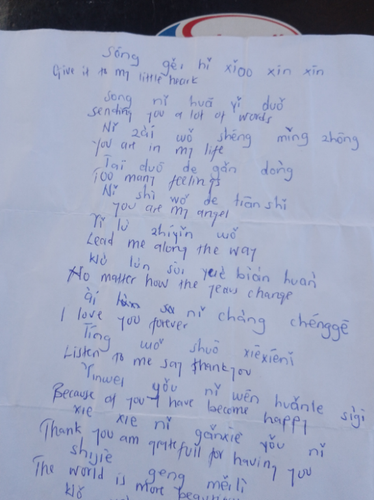 Sòng gěi nǐ xiǎo xīn xīn
Give it to my little heart
song nǐ huā yī duǒ
sending you a lot of words
Nǐ zài wǒ shēng mìng zhōng
You are in my life
Tai duō de gǎn dòng
Too many feelings
Nǐ shì wǒ de tiān shǐ
you are my angel
Yī lù zhǐyǐn wǒ
Lead me along the way
suì yuè biàn huàn
No matter how the years change
ài nǐ chàng chénggē
I love you forever
Tīng wǒ shuō xièxiènǐ
Listen to me say thankyou
Yīnwèi yǒu nǐ wēn nuǎnle sìjì
Because of you I have become happy
xiè xiè nǐ gǎnxiè yǒu nǐ
Thank you am gratefull for having you
shìjiè gèng měilì
The world is more